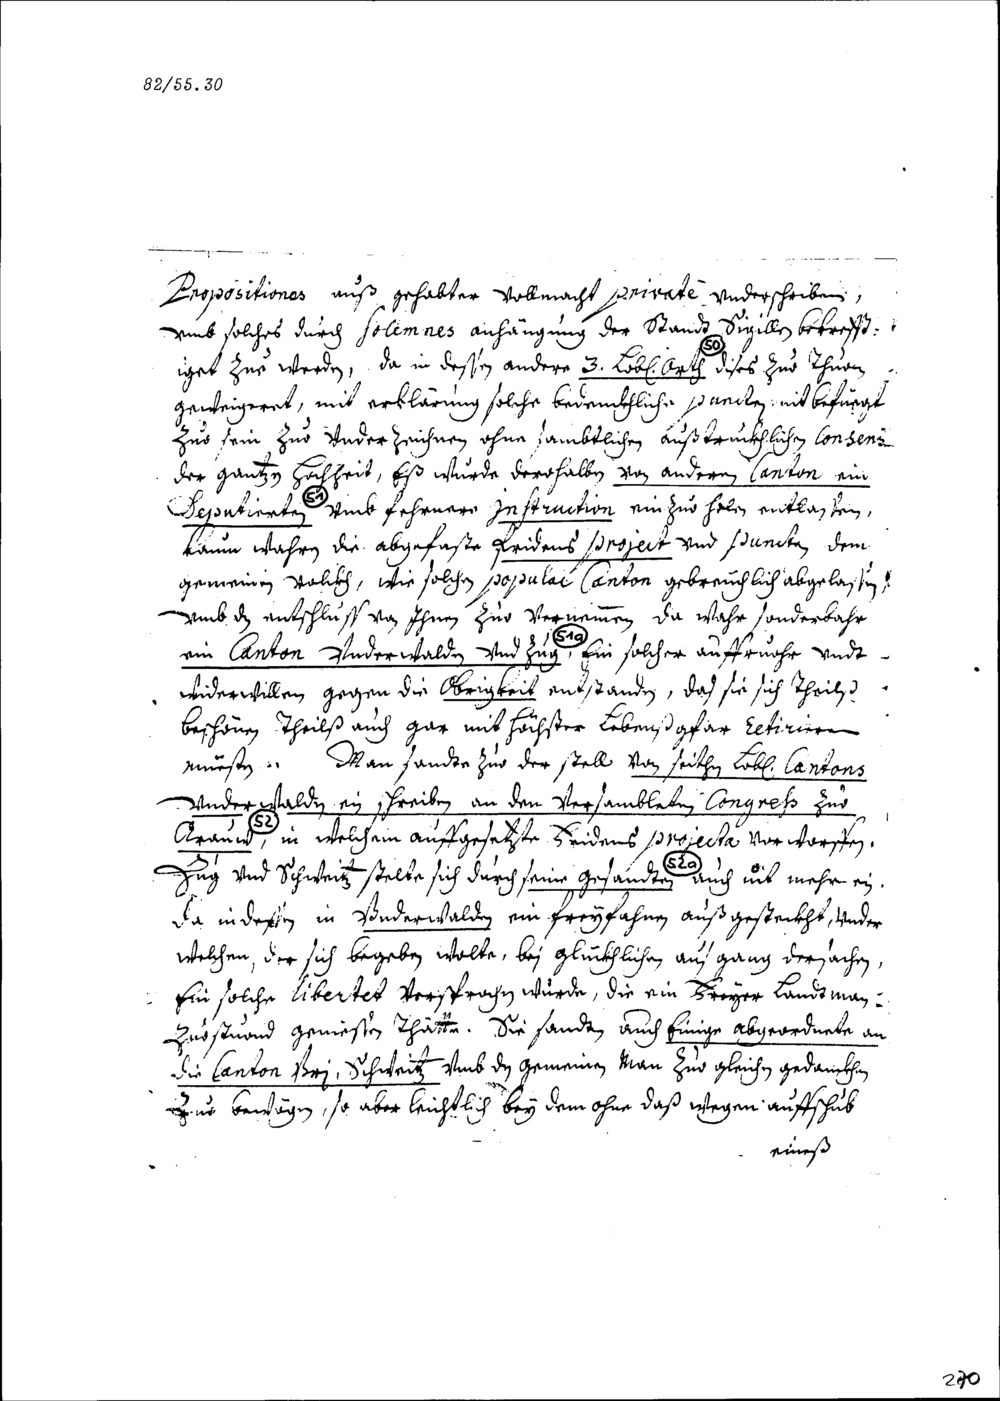 82/55.30
Propositiones auß gehabter vollmacht privatè vnderschriben,
vmb solches durch solemnes anhängung der Stands Sigillen bekrefft-
iget zue werden, da in dessen andere 3. Lobl. Orth 50 dises zuo thuon
geweigeret, mit erklärung solche bedenckhliche puncten nit befüegt
zuo sein zuo vnderzeichnen ohne sambtlichen außtruckhlichen Consens
der gantzen hochheit, Eß wurde derohalben von anderen Canton ein
Deputierten 51 vmb fehrnere Instruction ein zuo holen entlassen,
kaum wahren die abgefaste fridens project vnd puncten dem
gemeinen volckh, wie solchen popular Canton gebreuchlich abgelassen
vmb den entschluss von Ihnen zuo vernemmen da wahr sonderbahr
ein Canton Vnderwalden vnd Zug 51a, Ein solcher auffruohr vndt
widerwillen gegen die Obrigkeit entstanden, das sie sich theilß
theilß auch gar mit höchster Lebenßgfar retirieren
müesten. Man sandte zuo der stell von seithen Lobl. Cantons
Vnderwalden ein schreiben an den versambleten Congress zuo
Arauw 52, in welchem auffgesetzte Fridens projecta vorworffen.
Zug vnd Schweitz stelte sich durch seine gesandten 52a auch nit mehr ein.
da indessen in Vnderwalden ein freyfahnen außgesteckht, vnder
welchen, der sich begeben wolte, bej glückhlichen ausgang der sachen,
Ein solche libertet versprochen wurde, die ein Freyer Landtman
zuostuond geniessen thätte. Sie sandten auch Einige abgeordnete an
die Canton Vrj, Schweitz vmb den gemeinen Man zuo gleichen gedanckhen
zuo bewögen, so aber leichtlich bey dem ohne daß wegen auffschub
eineß
270